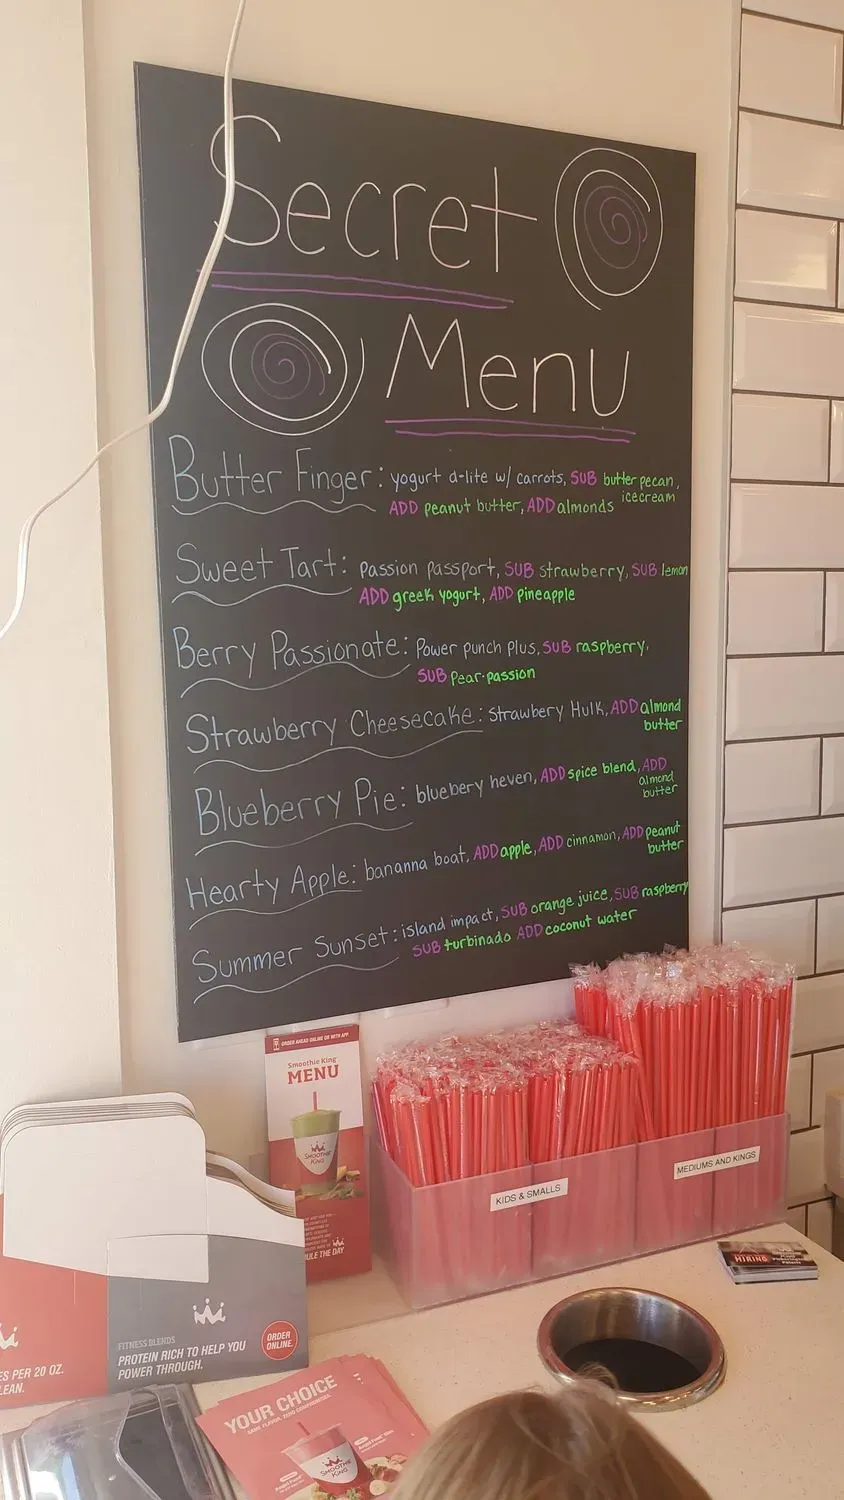 Secret
Menu
Butter Finger: yogurt d-lite w/ carrots, SUB butter pecan,
icecream
ADD peanut butter, ADD almonds
Sweet Tart: passion passport, SUB strawberry, SUB lemon
ADD greek yogurt, ADD pineapple
Berry Passionate: Power punch plus, SUB raspberry,
SUB Pear-passion
Strawberry Cheesecake: Strawbery Hulk, ADD almond
butter
Blueberry Pie: bluebery heven, ADD spice blend, ADD
almond
butter
Hearty Apple: bananna boat, ADD apple, ADD cinnamon, ADD peanut
butter
Summer Sunset: island impact, SUB orange juice, SUB raspberry
SUB turbinado ADD coconut water
ORDER AHEAD ONLINE OR WITH APP.
Smoothie King
MENU
SMOOTHIE
KING
ULE THE DAY
KIDS & SMALLS
MEDIUMS AND KINGS
HIRING
ES PER 20 OZ.
LEAN.
FITNESS BLENDS
PROTEIN RICH TO HELP YOU
POWER THROUGH.
ORDER
ONLINE.
YOUR CHOICE
SAME FLAVOR, ZERO COMPROMISES.
SMOOTHIE
KING